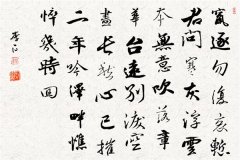 竄逐勿復哀慚
君問寒灰浮雲
本無意吹落章
華台遠別淚空
盡長愁心已摧
二年吟澤畔憔
悴幾時回